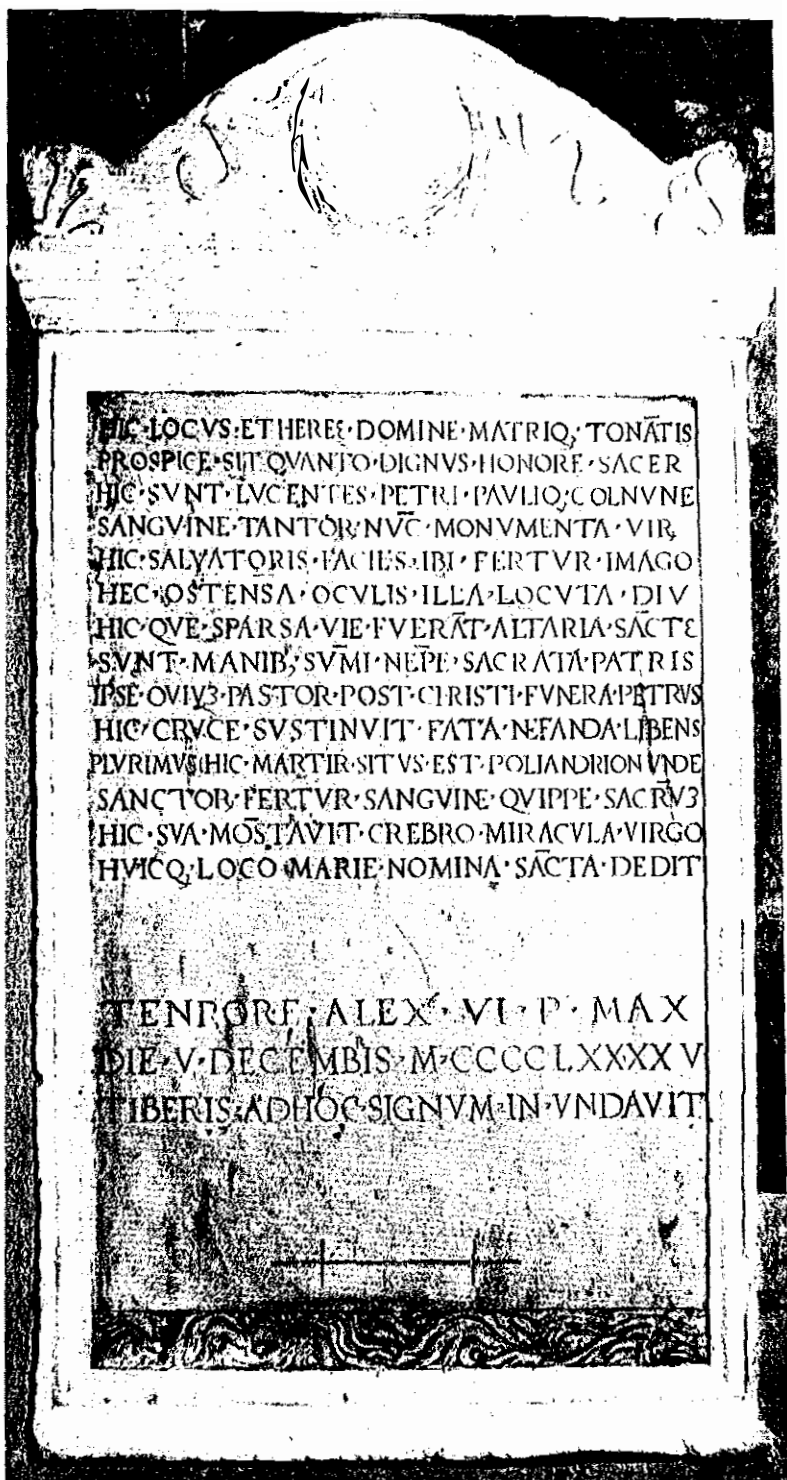 HIC·LOCVS·ETHEREE·DOMINE·MATRIQ;·TONĀTIS
PROSPICE·SIT·QVANTO·DIGNVS·HONORE·SACER
HIC·SVNT·LVCENTES·PETRI·PAVLIQ;COLNVNE
SANGVINE·TANTOR·NVC̄·MONVMENTA·VIR
HIC·SALVATORIS·FACIES·IBI·FERTVR·IMAGO
HEC·OSTENSA·OCVLIS·ILLA·LOCVTA·DIV
HIC·QVE·SPARSA·VIE·FVERĀT·ALTARIA·SĀCTE
SVNT·MANIB;·SVM̄I·NEPE·SACRATA·PATRIS
IPSE·OVIVꝫ·PASTOR·POST·CIRISTI·FVNERA·PETRVS
HIC·CRVCE·SVSTINVIT·FATA·NEFANDA·LIBENS
PLVRIMVS·HIC·MARTIR·SITVS·EST·POLIANDRION VNDE
SANCTOR·FERTVR·SANGVINE·QVIPPE·SACRVꝫ
HIC·SVA·MOSTAVIT·CREBRO·MIRACVLA·VIRGO
HVICQ;·LOCO·MARIE·NOMINA·SĀCTA·DEDIT
TENPORE·ALEX·VI·P·MAX
DIE·V·DECEMBIS·M·CCCCLXXXXV
TIBERIS·ADHOC·SIGNVM·IN·VNDAVIT